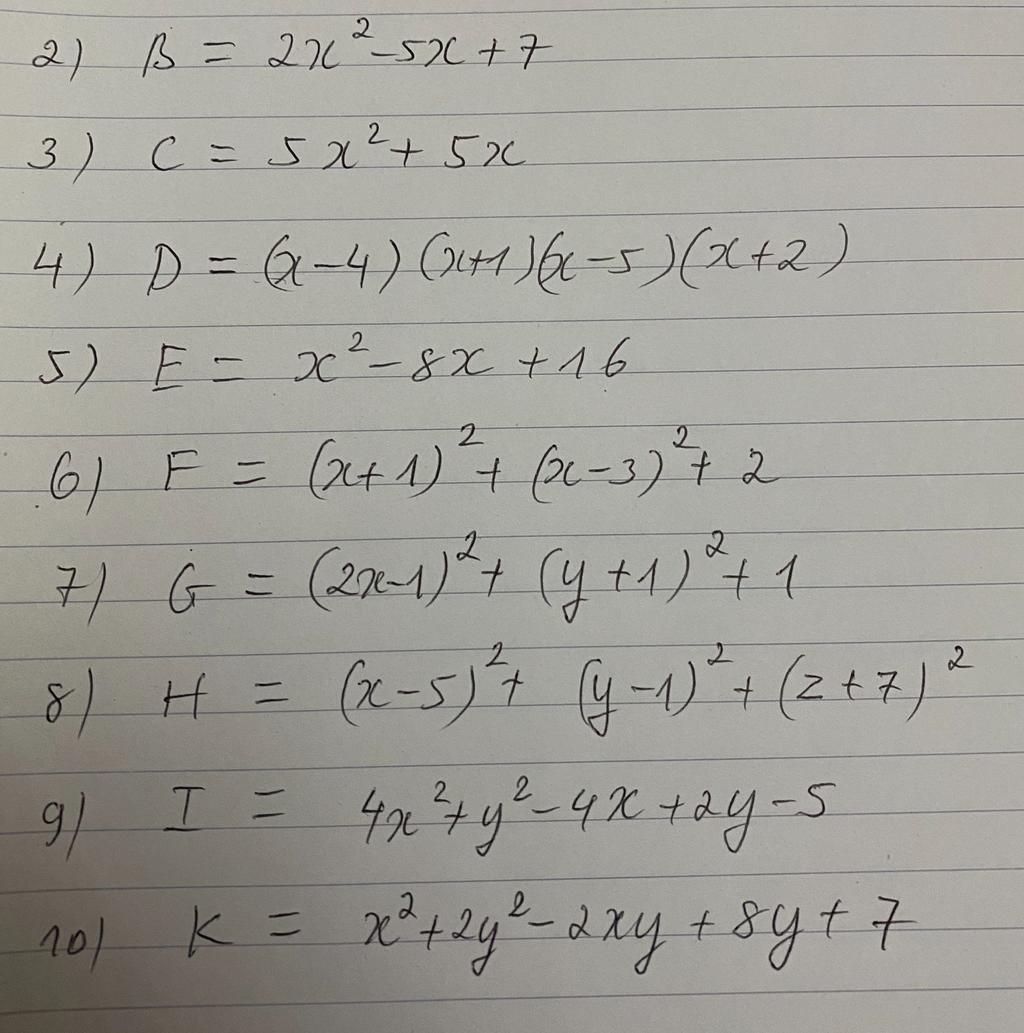 2) B = 2x² - 5x + 7
3) C = 5x² + 5x
4) D = (x - 4)(x + 1)(x - 5)(x + 2)
5) E = x² - 8x + 16
6) F = (x + 1)² + (x - 3)² + 2
7) G = (2x - 1)² + (y + 1)² + 1
8) H = (x - 5)² + (y - 1)² + (z + 7)²
9) I = 4x² + y² - 4x + 2y - 5
10) K = x² + 2y² - 2xy + 8y + 7